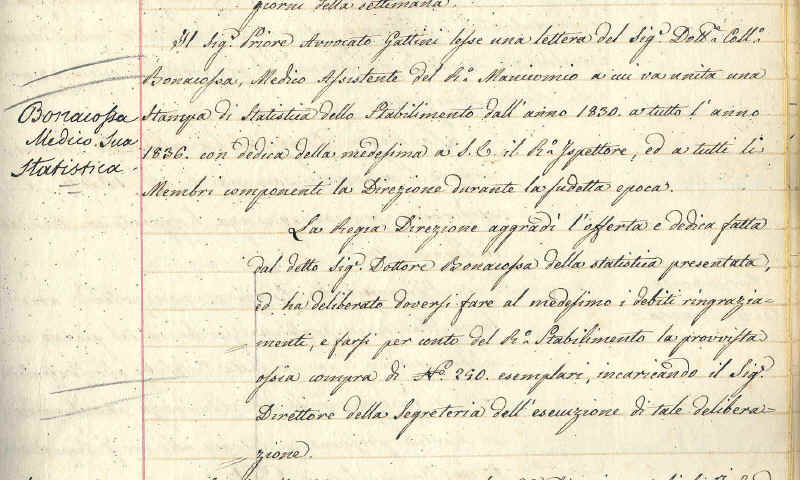 giorni della settimana.
Il Sig.r Priore Avvocato Gattini lesse una lettera del Sig.r Dott.e Coll.o
Bonacossa, Medico Assistente del R.o Manicomio a cui va unita una
Stampa di Statistica dello Stabilimento dall'anno 1830. a tutto l'anno
1836. con dedica della medesima a S.E. il R.o Ispettore, ed a tutti li
Membri componenti la Direzione durante la sudetta epoca.
Bonacossa
Medico. Sua
Statistica.
La Regia Direzione aggradì l'offerta e dedica fatta
dal detto Sig.r Dottore Bonacossa della statistica presentata,
ed ha deliberato doversi fare al medesimo i debiti ringrazia-
menti, e farsi per conto del R.o Stabilimento la provvista
ossia compra di N.o 250. esemplari, incaricando il Sig.r
Direttore della Segreteria dell'esecuzione di tale delibera-
zione.